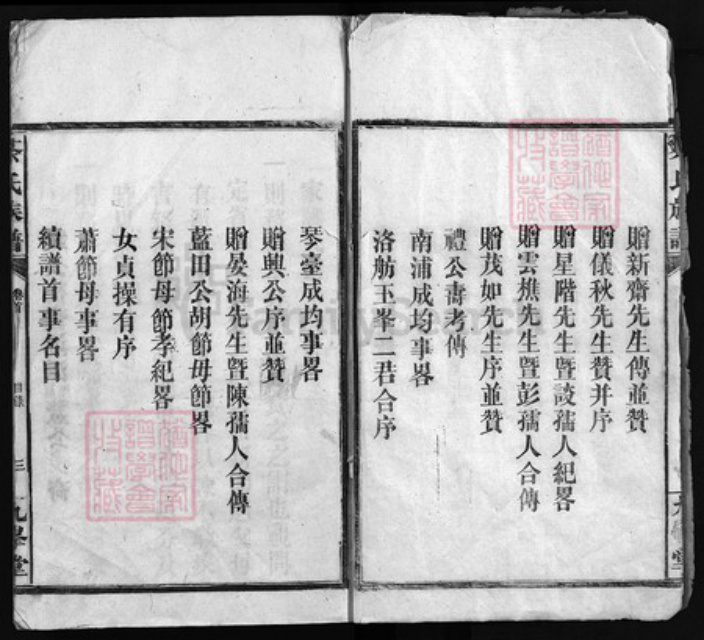 贈新齋先生傳並贊
贈儀秋先生贊并序
贈星階先生暨談孺人紀畧
贈雲樵先生暨彭孺人合傳
贈茂如先生序並贊
禮公壽考傳
南浦成均事畧
洛舫玉峯二君合序
琴臺成均事畧
贈興公序並贊
贈晏海先生暨陳孺人合傳
藍田公胡節母節畧
宋節母節孝紀畧
女貞操有序
蕭節母事畧
續譜首事名目
氏族譜
卷首
目錄
三
九峯堂